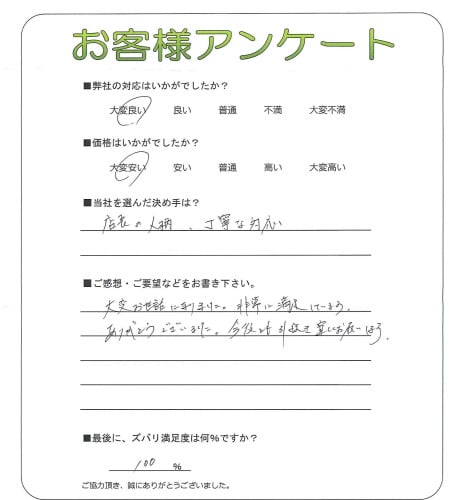 お客様アンケート
■弊社の対応はいかがでしたか?
大変良い 良い 普通 不満 大変不満
■価格はいかがでしたか?
大変安い 安い 普通 高い 大変高い
■当社を選んだ決め手は?
店長の人柄、丁寧な対応
■ご感想・ご要望などをお書き下さい。
大変お世話になりました。非常に満足しています。
ありがとうございました。今後とも引続き宜しくお願いします。
■最後に、ズバリ満足度は何%ですか?
100 %
ご協力頂き、誠にありがとうございました。